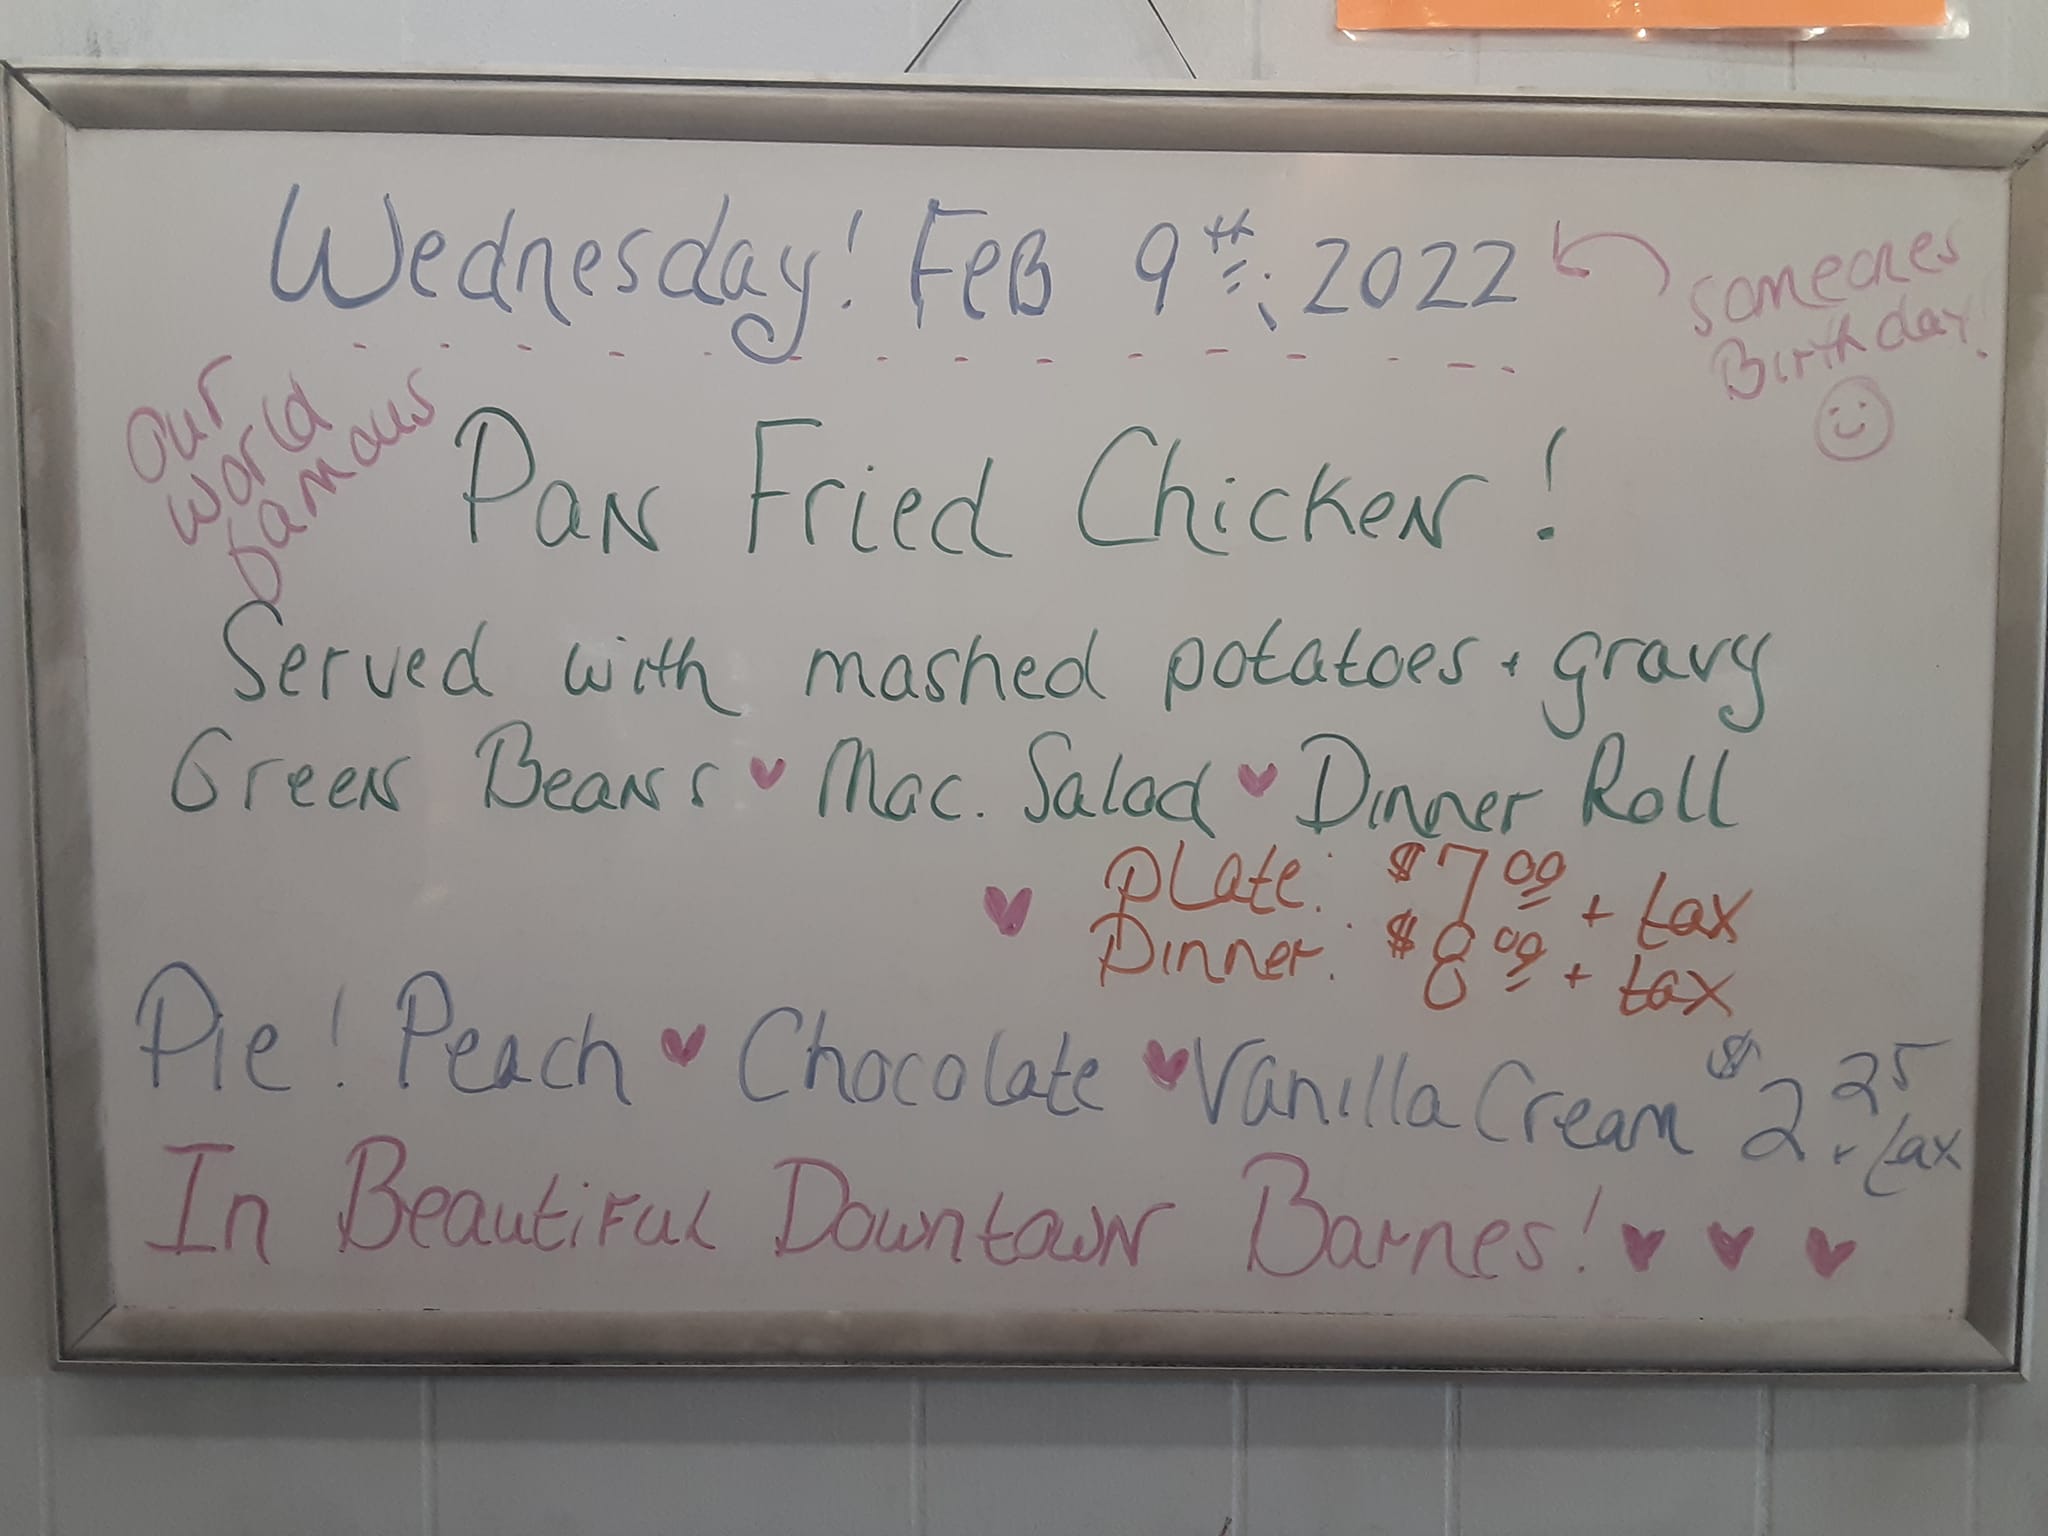 Wednesday! Feb 9th, 2022
someones
Birthday!
our
world
famous
Pan Fried Chicken!
Served with mashed potatoes + gravy
Green Beans ♥ Mac. Salad ♥ Dinner Roll
♥ Plate: $7.00 + tax
Dinner: $8.00 + tax
Pie! Peach ♥ Chocolate ♥ Vanilla Cream $2.25 + tax
In Beautiful Downtown Barnes! ♥ ♥ ♥